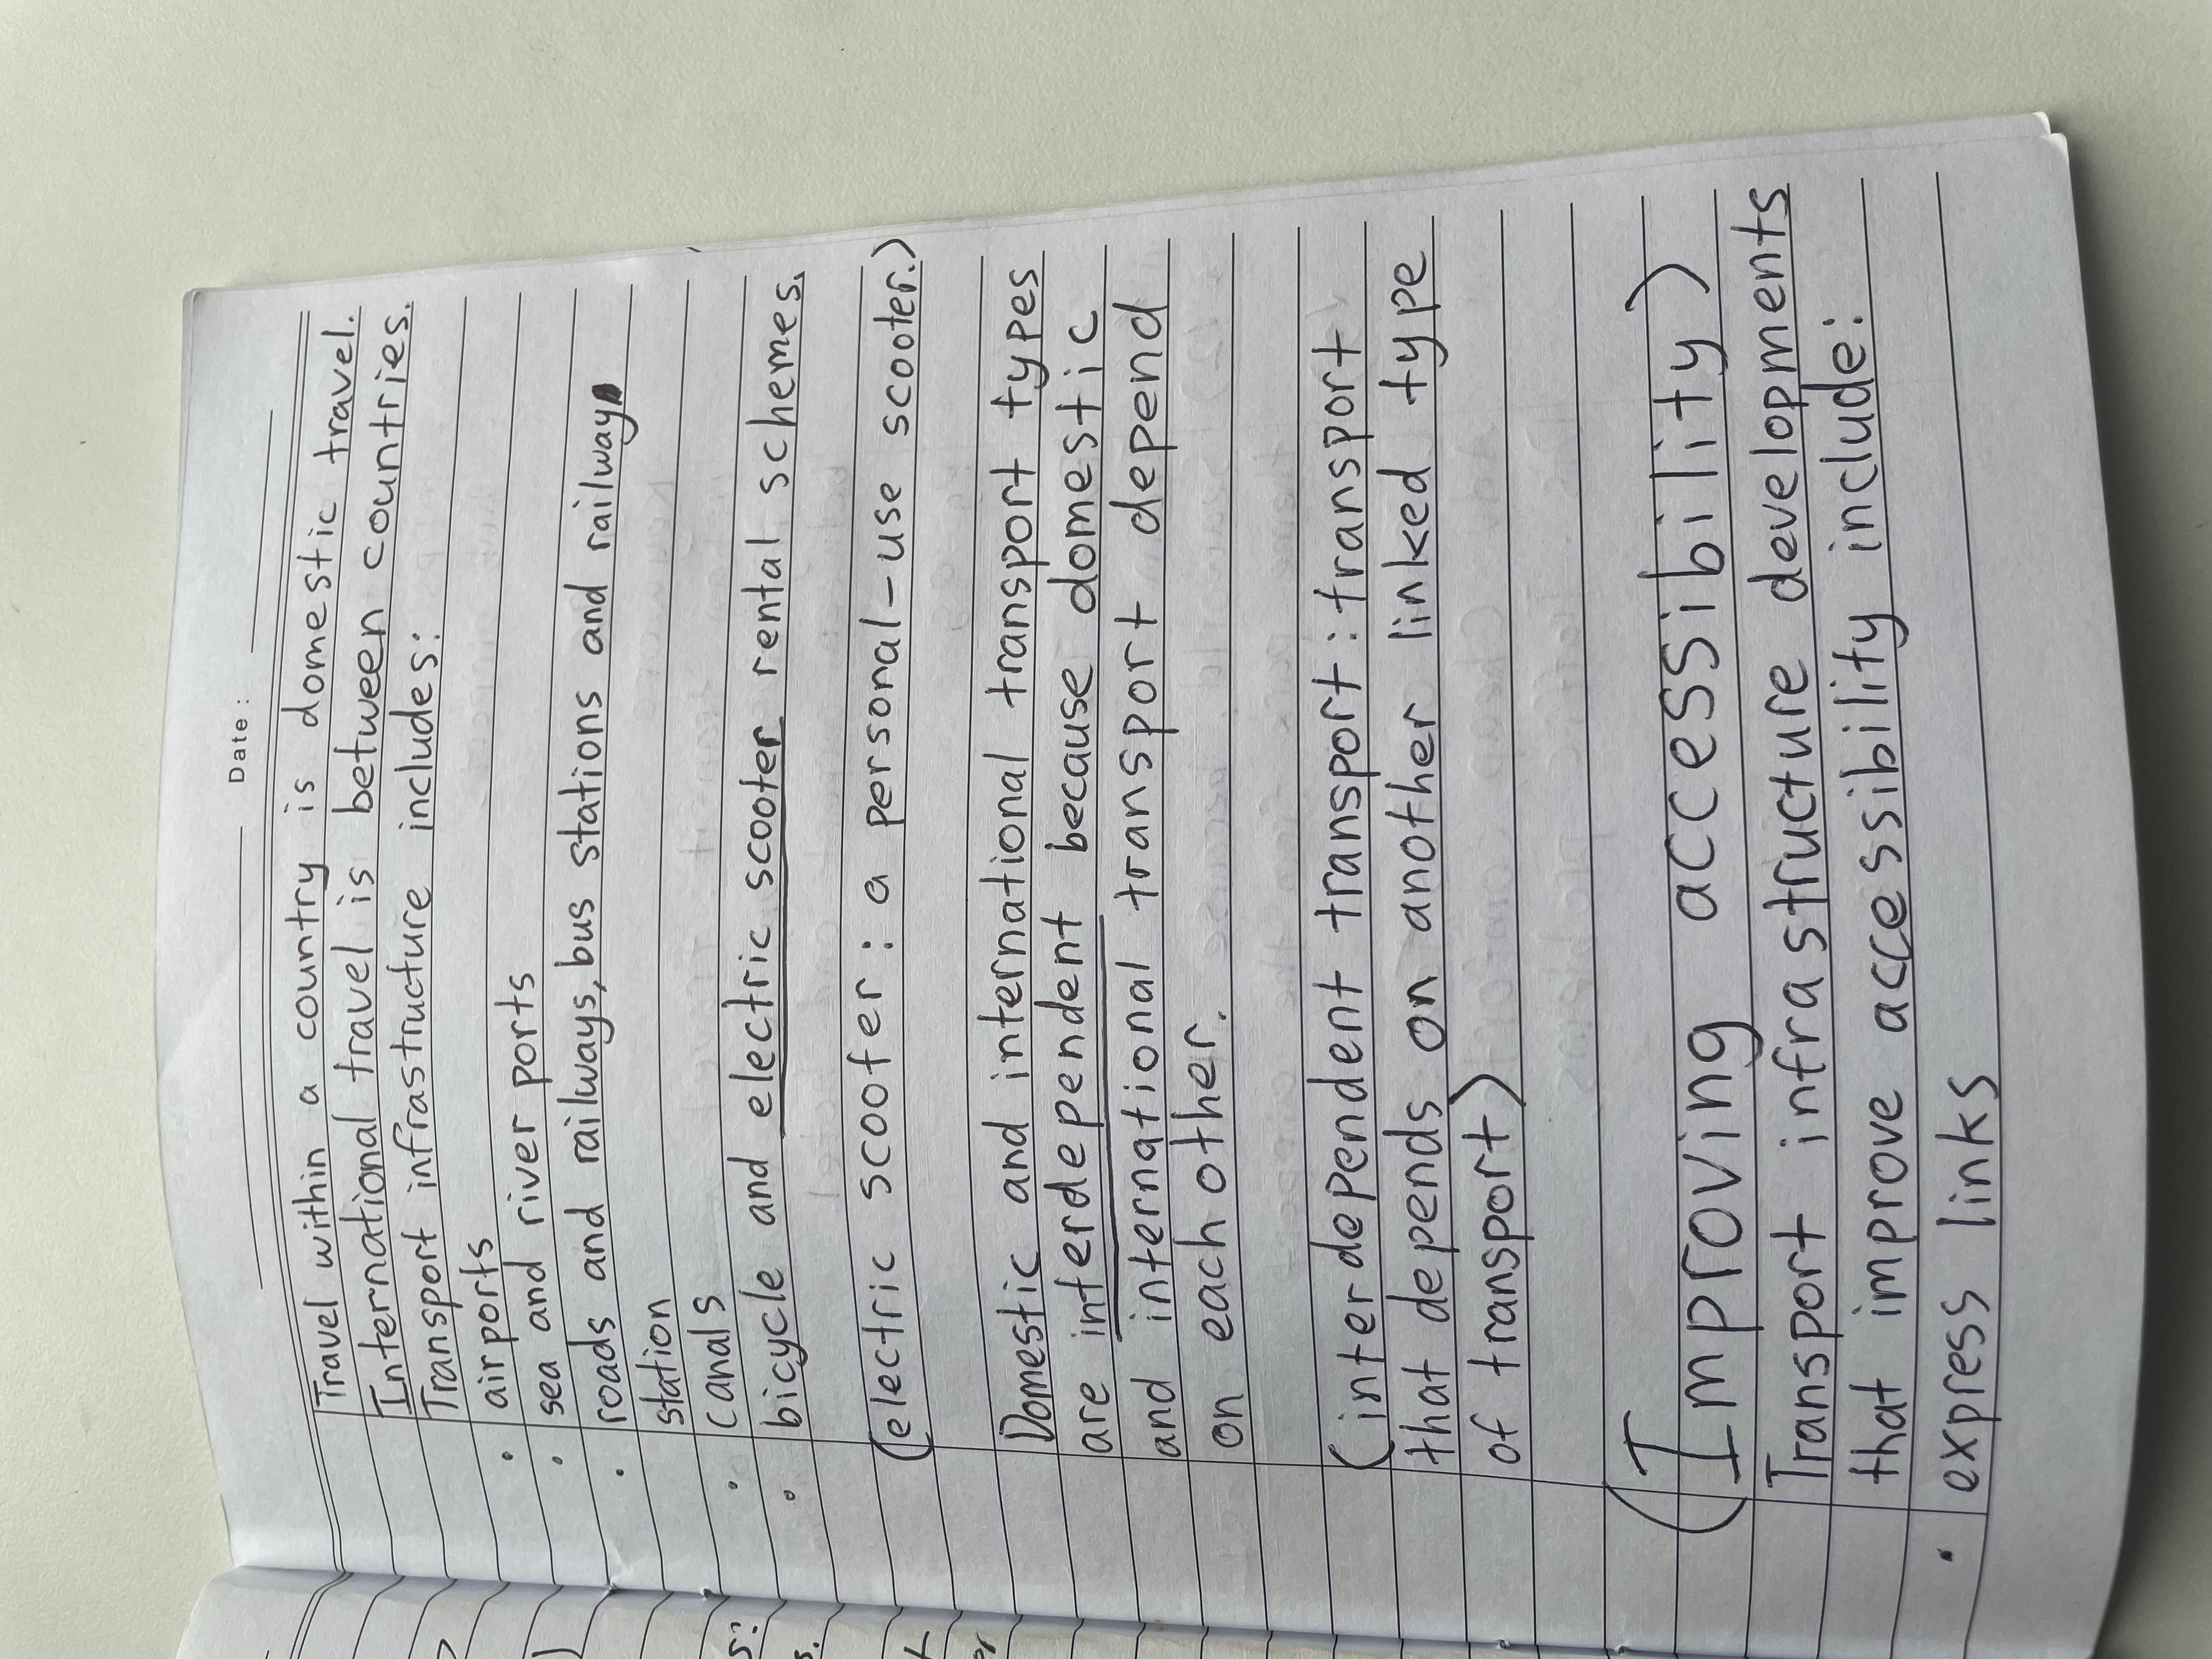 Date :
Travel within a country is domestic travel.
International travel is between countries.
Transport infrastructure includes:
• airports
• sea and river ports
• roads and railways, bus stations and railway
station
• canals
• bicycle and electric scooter rental schemes.
(electric scooter : a personal-use scooter.)
Domestic and international transport types
are interdependent because domestic
and international transport depend
on each other.
(interdependent transport : transport
that depends on another linked type
of transport)
(Improving accessibility)
Transport infrastructure developments
that improve accessibility include:
• express links